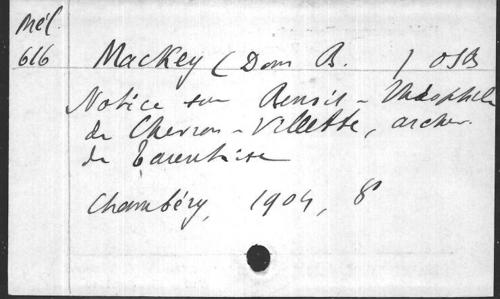 Mél.
616
Mackey (Dom B. ) OSB
Notice sur Benoit-Théophile
de Chevron-Villette, archev.
de Tarentaise
Chambéry, 1904, 8°